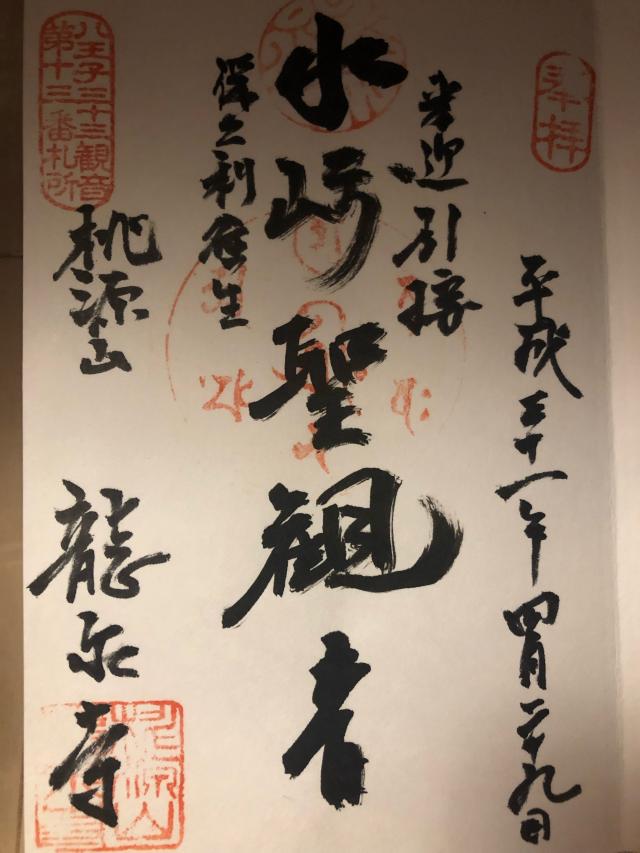 奉拝
平成三十一年四月二十九日
来迎引接
水崎聖観音
八王子三十三観音
第十三番札所
桃源山
龍泉寺